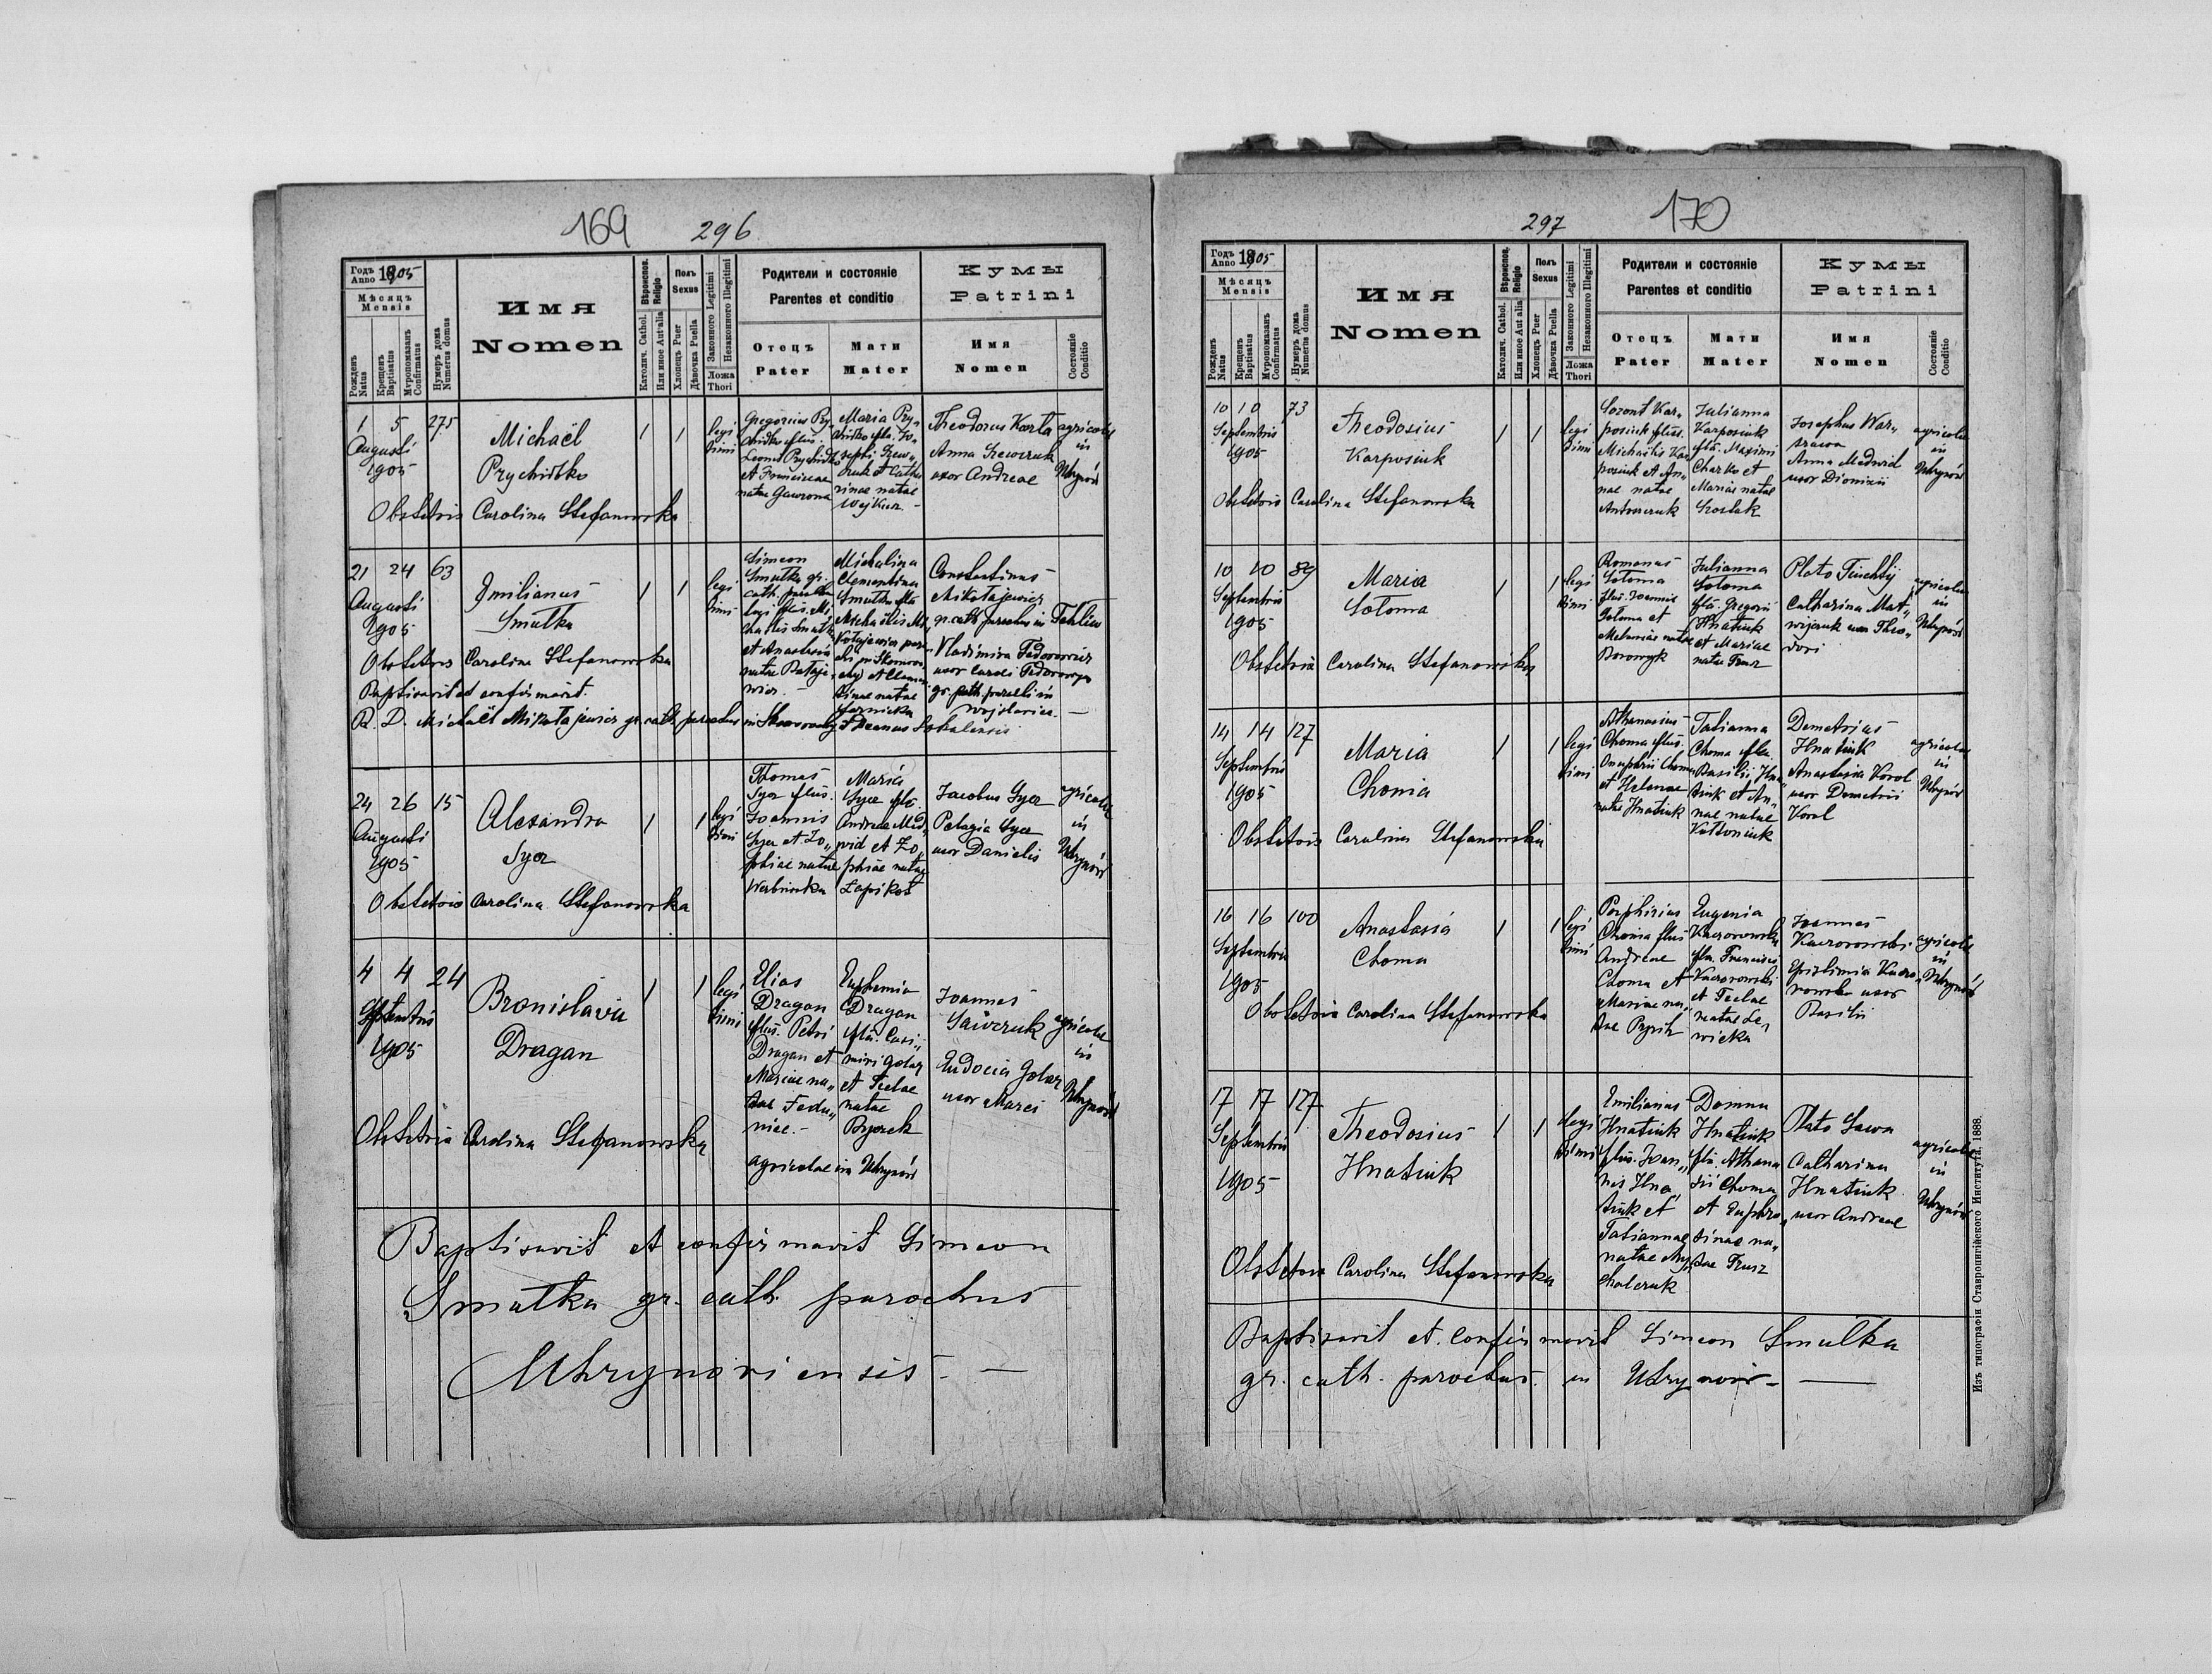 169
296
Годъ Anno 1905
Мѣсяцъ
Mensis
Рожденъ Natus
Крещенъ Baptisatus
Мѵропомазанъ Confirmatus
Нумеръ дома Numerus domus
Имя
Nomen
Вѣроиспов. Religio
Католич. Cathol.
Или иное Aut alia
Полъ Sexus
Хлопецъ Puer
Дѣвочка Puella
Законного Legitimi
Незаконного Illegitimi
Ложа Thori
Родители и состояніе
Parentes et conditio
Отецъ
Pater
Мати
Mater
Кумы
Patrini
Имя
Nomen
Состояніе
Conditio
1 5 275
Augusti
1905
Michaël
Prychidko
1 1
legi
timi
Gregorius Pry„
chidko flius.
Leonis Prychidko
et Franciscae
natae Gawrona
Maria Pry„
chidko fla. Jo„
sephi Szew„
czuk et Catha
rinae natae
Wojkiw
Theodorus Karta
Anna Szewczuk
uxor Andreae
agricolae
in
Uhrynów
Obstetrix Carolina Stefanowska
21 24 63
Augusti
1905
Emilianus
Smulka
1 1
legi
timi
Simeon
Smulka gr.
cath. parochus
loci flius. Mi
chaëlis Smulka
et Anastasia
natae
Michalina
Clementina
Smulka fla
Michaëlis Mi
kołajewicz paro
chi in Skomoro
chy et Clemen
tinae natae
Constantinus
Mikołajewicz
gr. cath. parochus in Tehliw
Vladimira Fedorowicz
uxor Caroli Fedorowicz
gr. cath. parochi in
Wojsławice. —
Obstetrix Carolina Stefanowska
Baptisavit et confirmavit.
R. D. Michaël Mikołajewicz gr. cath. parochus in Skomorochy et Decanus Sokalensis
24 26 15
Augusti
1905
Alexandra
Syez
1 1
legi
timi
Thomas
Syez flius.
Joannis
Syez et Zo„
phiae natae
Werbinska
Maria
Syez fla.
Andreae Med„
wid et Zo„
phiae natae
Łapikot
Jacobus Syez
Pelagia Syez
uxor Danielis
agricolae
in
Uhrynów
Obstetrix Carolina Stefanowska
4 4 24
Septembris
1905
Bronislava
Dragan
1 1
legi
timi
Elias
Dragan
flius. Petri
Dragan et
Mariae na„
tae Fedu„
niec. -
Euphemia
Dragan
fla. Casi„
miri Golaz
et Teclae
natae
Byczek
agricolae in Uhrynów
Joannes
Sawczuk
Eudocia Golaz
uxor Marci
agricolae
in
Uhrynów
Obstetrix Carolina Stefanowska
Baptisavit et confirmavit Simeon
Smulka gr. cath. parochus
Uhrynoviensis. —
297
170
Годъ Anno 1905
Мѣсяцъ
Mensis
Рожденъ Natus
Крещенъ Baptisatus
Мѵропомазанъ Confirmatus
Нумеръ дома Numerus domus
Имя
Nomen
Вѣроиспов. Religio
Католич. Cathol.
Или иное Aut alia
Полъ Sexus
Хлопецъ Puer
Дѣвочка Puella
Законного Legitimi
Незаконного Illegitimi
Ложа Thori
Родители и состояніе
Parentes et conditio
Отецъ
Pater
Мати
Mater
Кумы
Patrini
Имя
Nomen
Состояніе
Conditio
10 10 73
Septembris
1905
Theodosius
Karposiuk
1 1
legi
timi
Sozont Kar„
posiuk flius.
Michaëlis Kar
posiuk et An„
nae natae
Antonczuk
Julianna
Karposiuk
fla. Maximi
Charko et
Mariae natae
Kozlak
Josephus War„
szawa
Anna Medwid
uxor Dionisii
agricolae
in
Uhrynów
Obstetrix Carolina Stefanowska
10 10 89
Septembris
1905
Maria
Sołoma
1 1
legi
timi
Romanus
Sołoma
flius. Joannis
Sołoma et
Melaniae natae
Borowyk
Julianna
Sołoma
fla. Gregorii
Hnatiuk
et Mariae
natae Frusz
Plato
Catharina Mat„
wijczuk uxor Theo„
dori
agricolae
in
Uhrynów
Obstetrix Carolina Stefanowska
14 14 127
Septembris
1905
Maria
Choma
1 1
legi
timi
Athanasius
Choma flius.
Onuphrii Choma
et Helenae
natae Hnatiuk
Tatianna
Choma fla.
Basilii Hna„
tiuk et An„
nae natae
Demetrius
Hnatiuk
Anastasia Korol
uxor Demetrii
Korol
agricolae
in
Uhrynów
Obstetrix Carolina Stefanowska
16 16 100
Septembris
1905
Anastasia
Choma
1 1
legi
timi
Porphirius
Choma flius
Andreae
Choma et
Mariae na„
tae
Eugenia
Kaczorowska
fla. Francisci
Kaczorowski
et Teclae
natae Le„
wicka
Joannes
Kaczorowski
Epistimia Kaczo„
rowska uxor
Basilii
agricolae
in
Uhrynów
Obstetrix Carolina Stefanowska
17 17 127
Septembris
1905
Theodosius
Hnatiuk
1 1
legi
timi
Emilianus
Hnatiuk
flius. Joan„
nis Hna„
tiuk et
Tatiannae
natae My„
chalczuk
Domna
Hnatiuk
fla. Athana
sii Choma
et Euphro„
sinae na„
tae Frusz
Plato Sawa
Catharina
Hnatiuk
uxor Andreae
agricolae
in
Uhrynów
Obstetrix Carolina Stefanowska
Baptisavit et confirmavit Simeon Smulka
gr. cath. parochus. in Uhrynów — —
Изъ типографіи Ставропигійского Института, 1888.